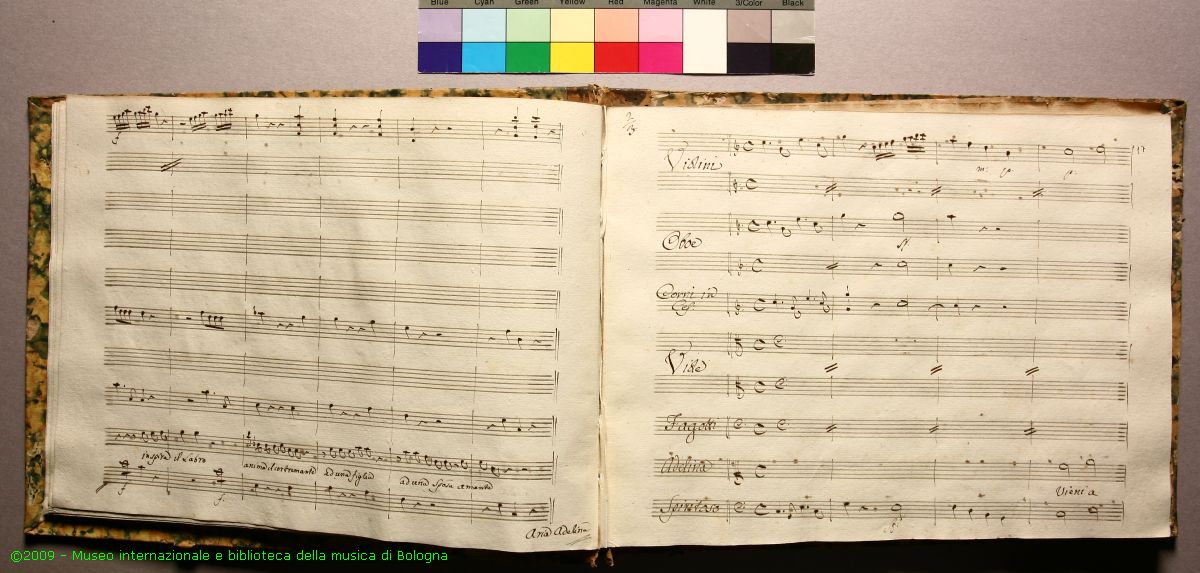 Blue Cyan Green Yellow Red Magenta White 3/Color Black
inspra il Labro
anima d'intromento
ed una figlia
ad una sposa amante
Aria Adelina
117
Violini
m: fo:
p:
Oboe
Corni in
Viole
Fagotti
Adelina
Vieni a
Spiritoso
©2009 - Museo internazionale e biblioteca della musica di Bologna